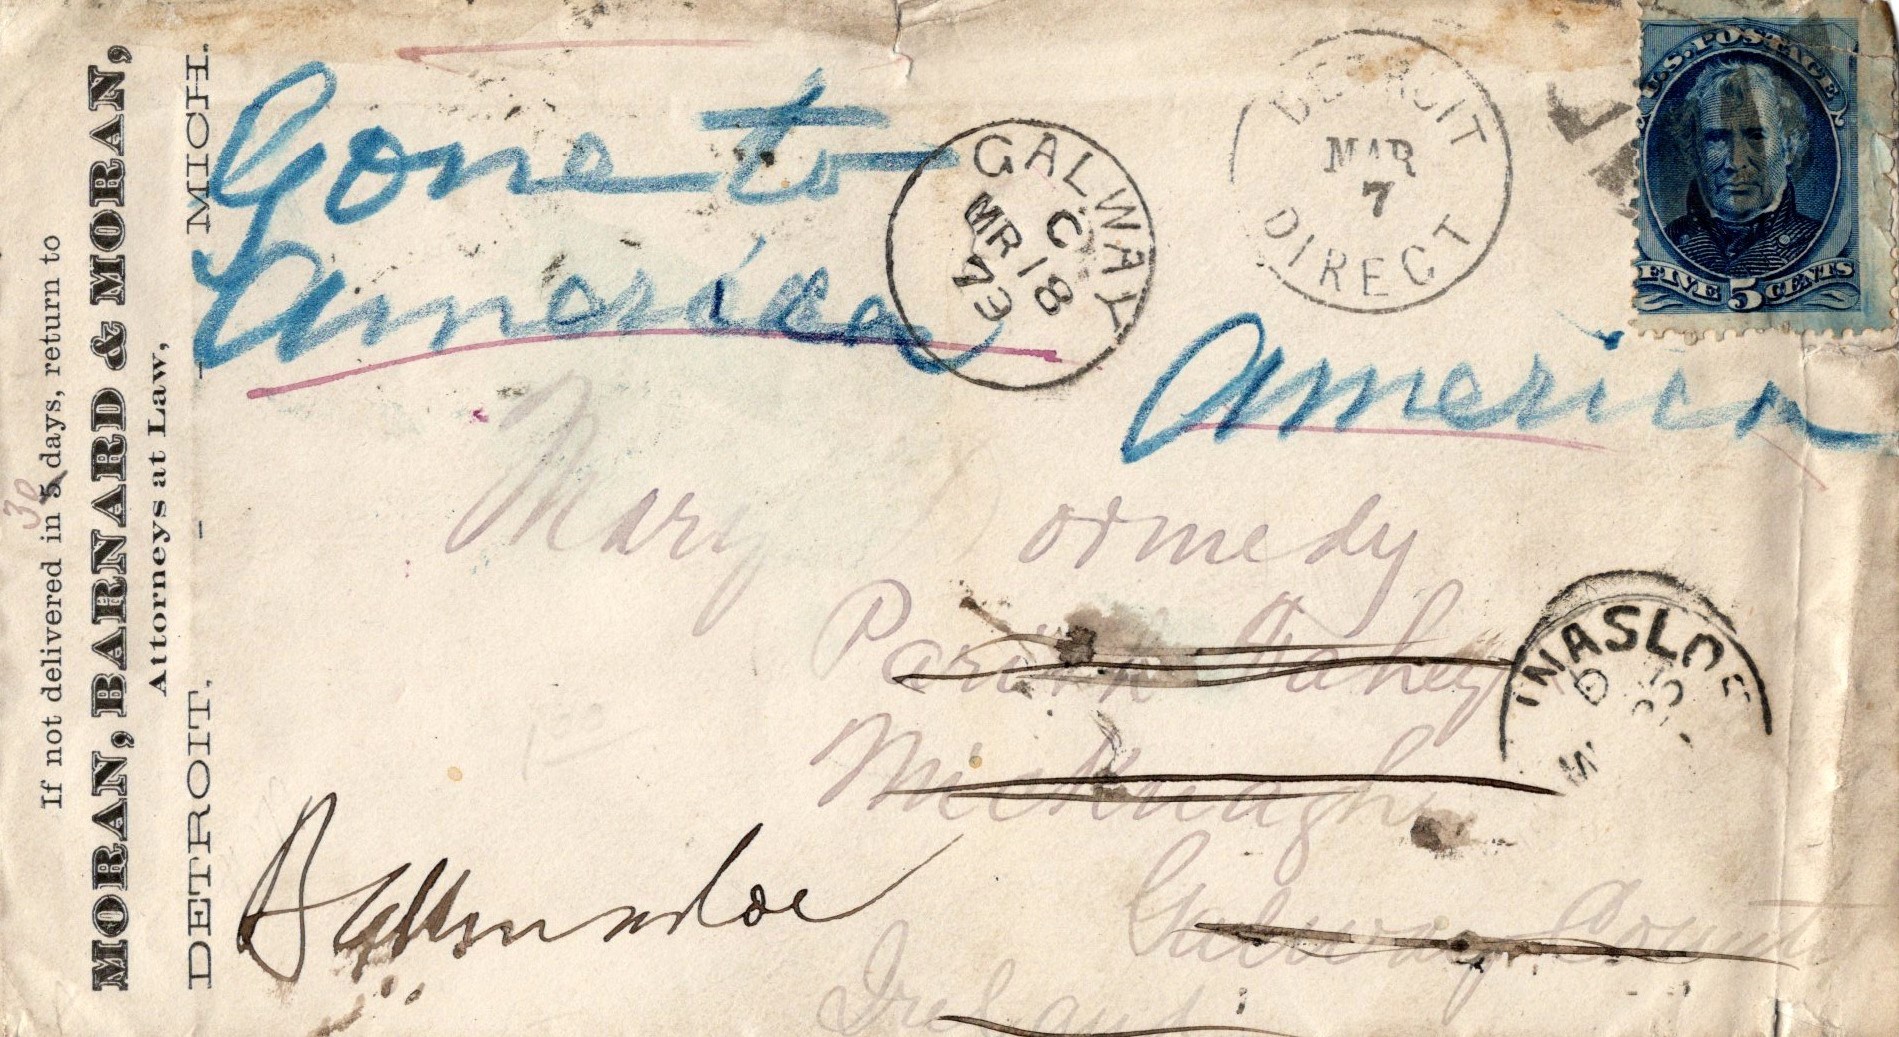 If not delivered in 5 30 days, return to
MORAN, BARNARD & MORAN,
Attorneys at Law,
DETROIT, - - MICH.
Gone to
America
GALWAY
C
MR 18
73
DETROIT
MAR
7
DIRECT
U.S. POSTAGE
FIVE 5 CENTS
America
Mary ormedy
Fahey
NASLOE
D
Galway County
Ireland
Ballinasloe